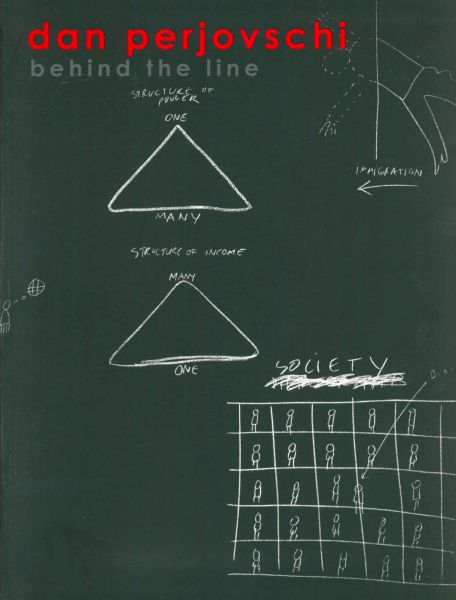 dan perjovschi
behind the line
STRUCTURE OF
POWER
ONE
MANY
IMMIGRATION
STRUCTURE OF INCOME
MANY
ONE
SOCIETY